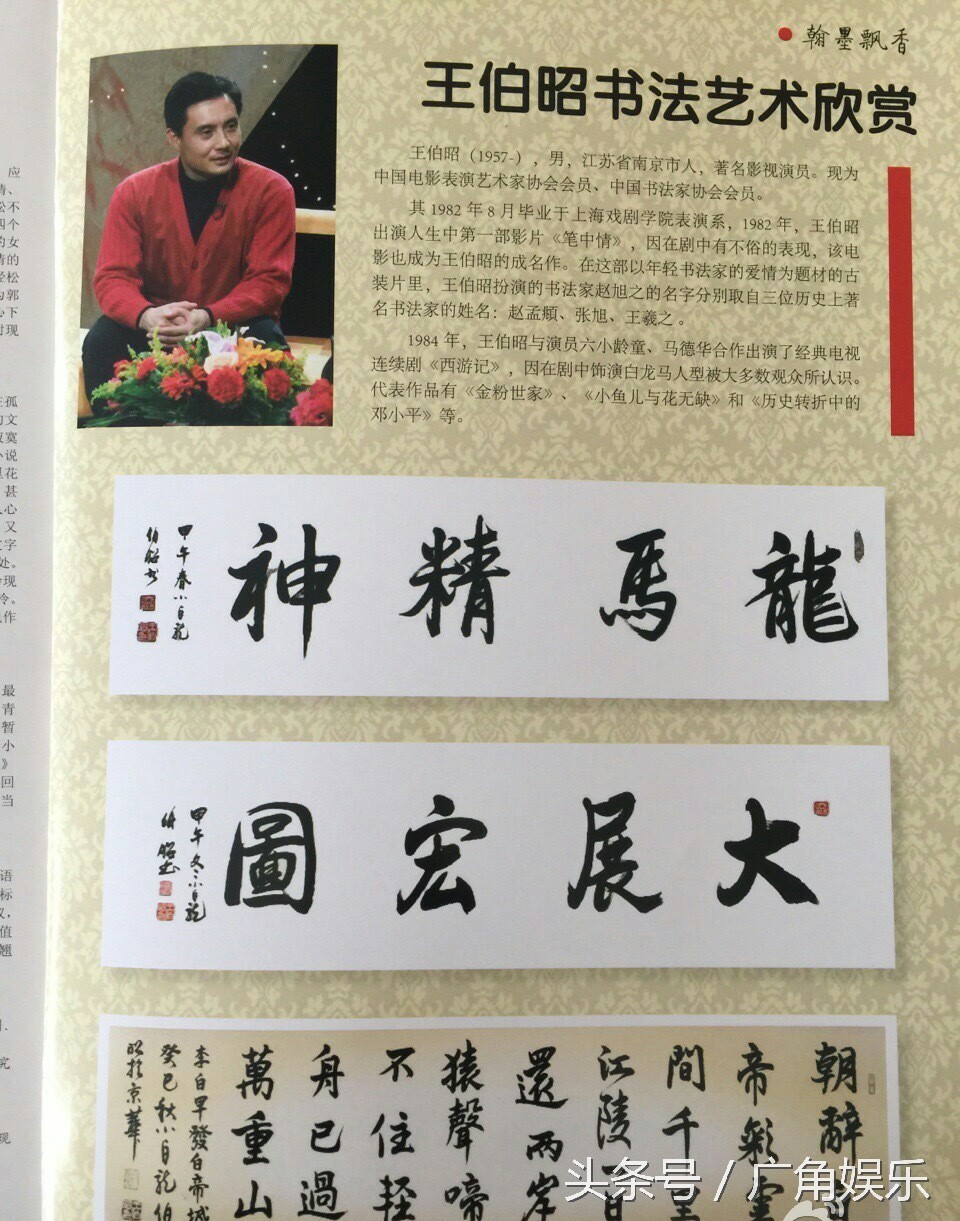 翰墨飘香
王伯昭书法艺术欣赏
王伯昭（1957-），男，江苏省南京市人，著名影视演员。现为
中国电影表演艺术家协会会员、中国书法家协会会员。
其 1982 年 8 月毕业于上海戏剧学院表演系，1982 年，王伯昭
出演人生中第一部影片《笔中情》，因在剧中有不俗的表现，该电
影也成为王伯昭的成名作。在这部以年轻书法家的爱情为题材的古
装片里，王伯昭扮演的书法家赵旭之的名字分别取自三位历史上著
名书法家的姓名：赵孟頫、张旭、王羲之。
1984 年，王伯昭与演员六小龄童、马德华合作出演了经典电视
连续剧《西游记》，因在剧中饰演白龙马人型被大多数观众所认识。
代表作品有《金粉世家》、《小鱼儿与花无缺》和《历史转折中的
邓小平》等。
龍馬精神
甲午春小白龍
伯昭书
大展宏圖
甲午冬小白龍
伯昭书
朝辭
帝彩雲
間千
江陵百
還两岸
猿聲啼
不住轻
舟已過
萬重山
李白早發白帝城
癸巳秋小白龍伯
昭於京華
头条号 / 广角娱乐